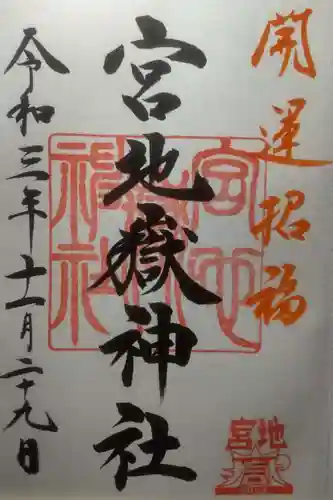 開運招福
宮地嶽神社
令和三年十一月二十九日
宮地嶽神社
宮地